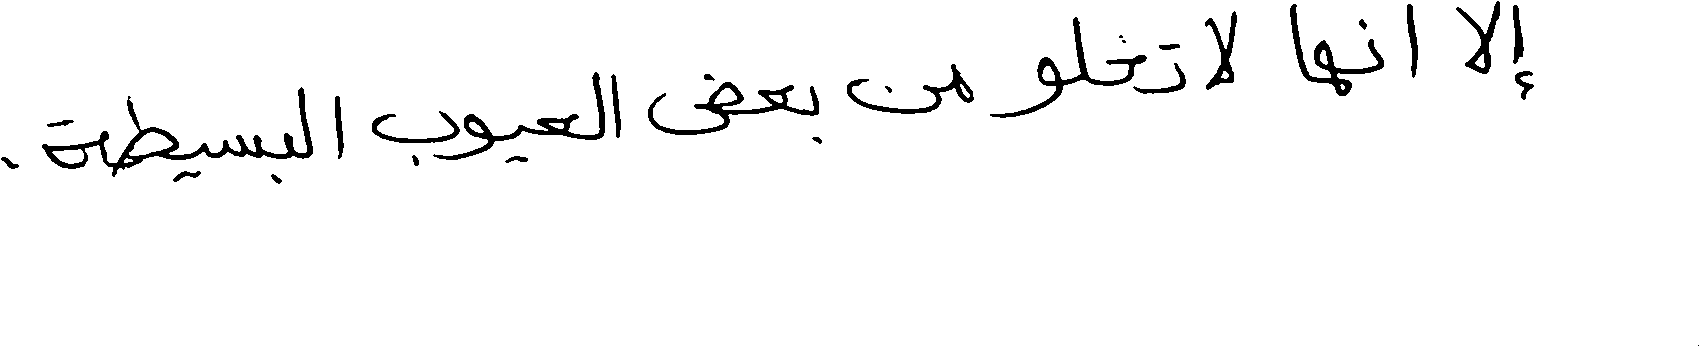 إلا انها لا تخلو من بعض العيوب البسيطة .